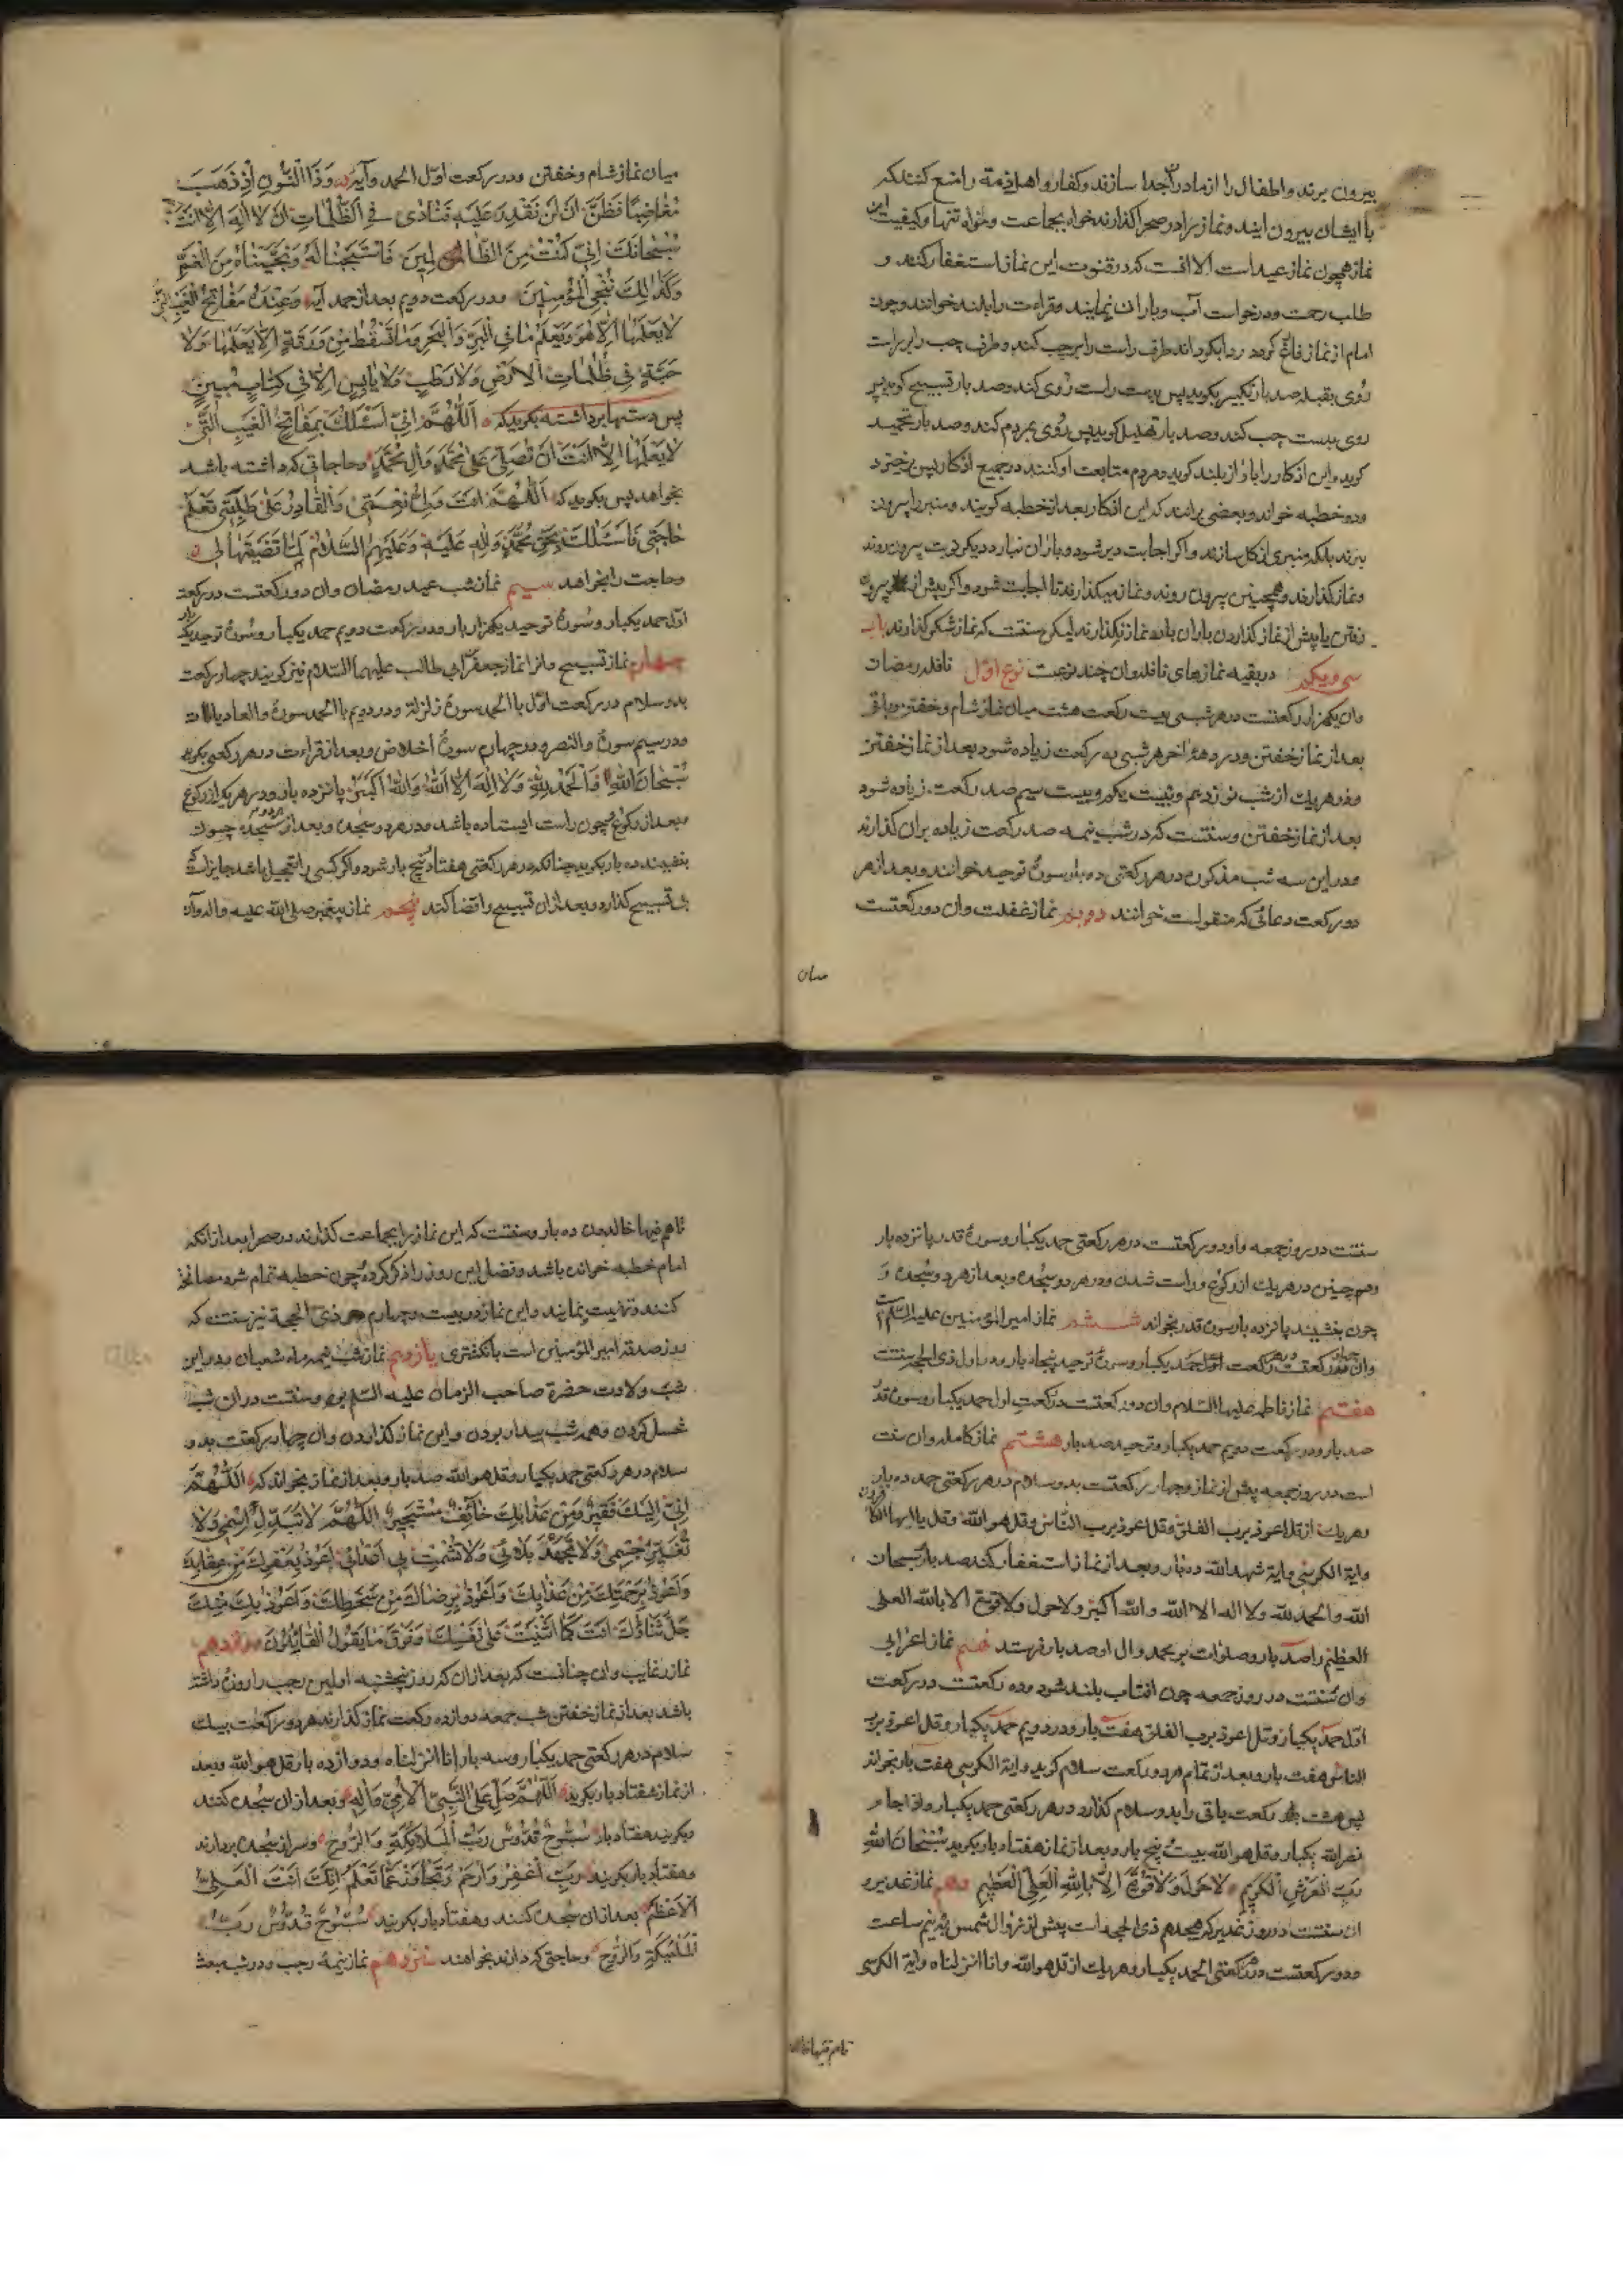 بیرون برند و اطفال را از مادر جدا سازند و کفار و اهل ذمه را منع کنند که
با ایشان بیرون آیند و نماز را در صحرا گذارند خواه بجماعت و خواه تنها و کیفیت این
نماز همچون نماز عید است الا آنست که در قنوت این نماز استغفار کنند و
طلب رحمت و درخواست آب و باران نمایند و قراءت را بلند خوانند و چون
امام از نماز فارغ گردد ردا بگرداند طرف راست را بر چپ کند و طرف چپ را بر راست
روی بقبله صد بار تکبیر بگوید پس بدست راست روی کند و صد بار تسبیح گوید پس
روی بدست چپ کند و صد بار تهلیل گوید پس روی بمردم کند و صد بار تحمید
گوید و این اذکار را باواز بلند گوید و مردم متابعت او کنند در جمیع اذکار پس برخیزد
و دو خطبه خواند و بعضی برانند که این اذکار بعد از خطبه گویند و منبر را بیرون
نبرند بلکه منبری از گل سازند و اگر اجابت دیر شود و باران نبارد دیگر نوبت بیرون روند
و نماز گذارند و همچنین بیرون روند و نماز میگذارند تا اجابت شود و اگر پیش از بیرون
رفتن یا پیش از نماز گذاردن باران بارد نماز نگذارند لیکن سنتست که نماز شکر گذارند باب
سی و یکم در بقیه نمازهای نافله و آن چند نوعست نوع اول نافله رمضان
و آن یکهزار رکعتست در هر شبی بیست رکعت هشت میان نماز شام و خفتن و باقی
بعد از نماز خفتن و در دهه آخر هر شبی ده رکعت زیاده شود بعد از نماز خفتن
و در هر یک از شب نوزدهم و بیست یکم و بیست سیم صد رکعت زیاده شود
بعد از نماز خفتن و سنتست که در شب نیمه صد رکعت زیاده بران گذارند
و در این سه شب مذکور در هر رکعتی ده بار سوره توحید خوانند و بعد از هر
دو رکعت دعائی که منقولست خوانند دویم نماز غفلت و آن دو رکعتست
میان
میان نماز شام و خفتن و در رکعت اول الحمد و آیه وَذَا النُّونِ اِذْ ذَهَبَ
مُغَاضِبًا فَظَنَّ اَنْ لَنْ نَقْدِرَ عَلَيْهِ فَنَادٰى فِي الظُّلُمَاتِ اَنْ لَا اِلٰهَ اِلَّا اَنْتَ
سُبْحَانَكَ اِنِّي كُنْتُ مِنَ الظَّالِمِينَ فَاسْتَجَبْنَا لَهُ وَنَجَّيْنَاهُ مِنَ الْغَمِّ
وَكَذٰلِكَ نُنْجِي الْمُؤْمِنِينَ و در رکعت دویم بعد از حمد آیه وَعِنْدَهُ مَفَاتِحُ الْغَيْبِ
لَا يَعْلَمُهَا اِلَّا هُوَ وَيَعْلَمُ مَا فِي الْبَرِّ وَالْبَحْرِ وَمَا تَسْقُطُ مِنْ وَرَقَةٍ اِلَّا يَعْلَمُهَا وَلَا
حَبَّةٍ فِي ظُلُمَاتِ الْاَرْضِ وَلَا رَطْبٍ وَلَا يَابِسٍ اِلَّا فِي كِتَابٍ مُبِينٍ
پس دستها برداشته بگوید که اَللّٰهُمَّ اِنِّي اَسْئَلُكَ بِمَفَاتِحِ الْغَيْبِ الَّتِي
لَا يَعْلَمُهَا اِلَّا اَنْتَ اَنْ تُصَلِّيَ عَلٰى مُحَمَّدٍ وَاٰلِ مُحَمَّدٍ و حاجاتی که داشته باشد
بخواهد پس بگوید که اَللّٰهُمَّ اَنْتَ وَلِيُّ نِعْمَتِي وَالْقَادِرُ عَلٰى طَلِبَتِي تَعْلَمُ
حَاجَتِي فَاَسْئَلُكَ بِحَقِّ مُحَمَّدٍ وَاٰلِهِ عَلَيْهِ وَعَلَيْهِمُ السَّلَامُ لَمَّا قَضَيْتَهَا لِي
و حاجت را بخواهد سیم نماز شب عید رمضان و آن دو رکعتست در رکعت
اول حمد یکبار و سوره توحید یکهزار بار و در رکعت دویم حمد یکبار و سوره توحید یکبار
چهارم نماز تسبیح و آنرا نماز جعفر ابی طالب علیهما السلام نیز گویند چهار رکعت
بدو سلام در رکعت اول با الحمد سوره زلزلة و در دویم با الحمد سوره والعادیات
و در سیم سوره والنصر و در چهارم سوره اخلاص و بعد از قراءت در هر رکعتی بگوید
سُبْحَانَ اللهِ وَالْحَمْدُ لِلّٰهِ وَلَا اِلٰهَ اِلَّا اللهُ وَاللهُ اَكْبَرُ پانزده بار و در هر یک از رکوع
و بعد از رکوع چون راست ایستاده باشد و در هر دو سجده و بعد از هر دو سجده چون
بنشیند ده بار بگوید چنانکه در هر رکعتی هفتاد پنج بار شود و اگر کسی را تعجیل باشد جایز است
بی تسبیح گذارد و بعد از آن تسبیح را قضا کند پنجم نماز پیغمبر صلی الله علیه و اله و آن
سنتست در روز جمعه و آن دو رکعتست در هر رکعتی حمد یکبار و سوره قدر پانزده بار
و همچنین در هر یک از رکوع و راست شدن و در هر دو سجده و بعد از هر دو سجده و
چون بنشیند پانزده بار سوره قدر بخواند ششم نماز امیر المؤمنین علیه السلام
و آن چهار رکعتست در هر رکعت حمد یکبار و سوره توحید پنجاه بار و در اول ذی الحجه سنتست
هفتم نماز فاطمه علیها السلام و آن دو رکعتست در رکعت اول حمد یکبار و سوره قدر
صد بار و در رکعت دویم حمد یکبار و توحید صد بار هشتم نماز کامله و آن سنت
است در روز جمعه پیش از نماز و چهار رکعتست بدو سلام در هر رکعتی حمد ده بار
و هر یک از قل اعوذ برب الفلق و قل اعوذ برب الناس و قل هو الله و قل یا ایها الکافرون
و ایة الکرسی و ایة شهد الله ده بار و بعد از نماز استغفار کند صد بار سبحان
الله والحمد لله ولا اله الا الله والله اکبر ولا حول ولا قوة الا بالله العلی
العظیم را صد بار و صلوات بر محمد و ال او صد بار فرستد نهم نماز اعرابی
و آن سنتست در روز جمعه چون افتاب بلند شود و ده رکعتست در رکعت
اول حمد یکبار و قل اعوذ برب الفلق هفت بار و در دویم حمد یکبار و قل اعوذ برب
الناس هفت بار و بعد از تمام هر دو رکعت سلام گوید و ایة الکرسی هفت بار بخواند
پس هشت رکعت باقی را بدو سلام گذارد در هر رکعتی حمد یکبار و اذا جاء
نصر الله یکبار و قل هو الله بیست پنج بار و بعد از نماز هفتاد بار بگوید سُبْحَانَ اللهِ
رَبِّ الْعَرْشِ الْكَرِيمِ لَا حَوْلَ وَلَا قُوَّةَ اِلَّا بِاللهِ الْعَلِيِّ الْعَظِيمِ دهم نماز غدیر و
ان سنتست در روز غدیر که هیجدهم ذی الحجه است پیش از زوال شمس بنیم ساعت
و دو رکعتست در هر رکعتی الحمد یکبار و هر یک از قل هو الله و انا انزلناه و ایة الکرسی
تا هم فیها خالدون
تا هم فیها خالدون ده بار و سنتست که این نماز را بجماعت گذارند در صحرا بعد از انکه
امام خطبه خوانده باشد و فضل این روز را ذکر کرده و چون خطبه تمام شود مصافحه
کنند و تهنیت نمایند و این نماز در بیست و چهارم ذی الحجة نیز سنتست که
روز صدقه امیر المؤمنین است بانگشتری یازدهم نماز شب نیمه ماه شعبان و در این
شب ولادت حضرة صاحب الزمان علیه السلام بوده و سنتست در ان شب
غسل کردن و همه شب بیدار بودن و این نماز گذاردن و آن چهار رکعتست بدو
سلام در هر رکعتی حمد یکبار و قل هو الله صد بار و بعد از نماز بخواند که اَللّٰهُمَّ
اِنِّي اِلَيْكَ فَقِيرٌ وَمِنْ عَذَابِكَ خَائِفٌ مُسْتَجِيرٌ اَللّٰهُمَّ لَا تُبَدِّلْ اِسْمِي وَلَا
تُغَيِّرْ جِسْمِي وَلَا تُجْهِدْ بَلَائِي وَلَا تُشْمِتْ بِي اَعْدَائِي اَعُوذُ بِعَفْوِكَ مِنْ عِقَابِكَ
وَاَعُوذُ بِرَحْمَتِكَ مِنْ عَذَابِكَ وَاَعُوذُ بِرِضَاكَ مِنْ سَخَطِكَ وَاَعُوذُ بِكَ مِنْكَ
جَلَّ ثَنَاؤُكَ اَنْتَ كَمَا اَثْنَيْتَ عَلٰى نَفْسِكَ وَفَوْقَ مَا يَقُولُ الْقَائِلُونَ دوازدهم
نماز رغایب و آن چنانست که بعد از آن که روز پنجشنبه اولین رجب را روزه داشته
باشد بعد از نماز خفتن شب جمعه دوازده رکعت نماز گذارند هر دو رکعت بیک
سلام در هر رکعتی حمد یکبار و سه بار انا انزلناه و دوازده بار قل هو الله و بعد
از نماز هفتاد بار بگوید اَللّٰهُمَّ صَلِّ عَلَى النَّبِيِّ الْاُمِّيِّ وَاٰلِهِ و بعد از ان سجده کنند
و بگویند هفتاد بار سُبُّوحٌ قُدُّوسٌ رَبُّ الْمَلَائِكَةِ وَالرُّوحِ و سر از سجده بردارند
و هفتاد بار بگویند رَبِّ اغْفِرْ وَارْحَمْ وَتَجَاوَزْ عَمَّا تَعْلَمُ اِنَّكَ اَنْتَ الْعَلِيُّ
الْاَعْظَمُ بعد از ان سجده کنند و هفتاد بار بگویند سُبُّوحٌ قُدُّوسٌ رَبُّ
الْمَلٰئِكَةِ وَالرُّوحِ و حاجتی که دارند بخواهند سیزدهم نماز نیمه رجب و در شب مبعث